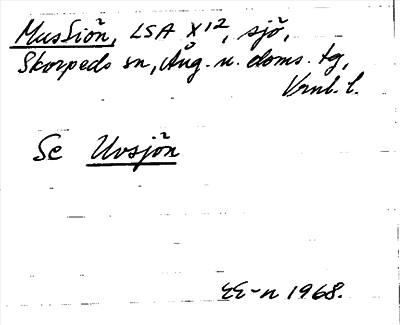 Mussiön, LSA X12, sjö,
Skorpeds sn, Ång. n. doms. tg,
Vrnl. l.
Se Uvsjön
EE-n 1968.